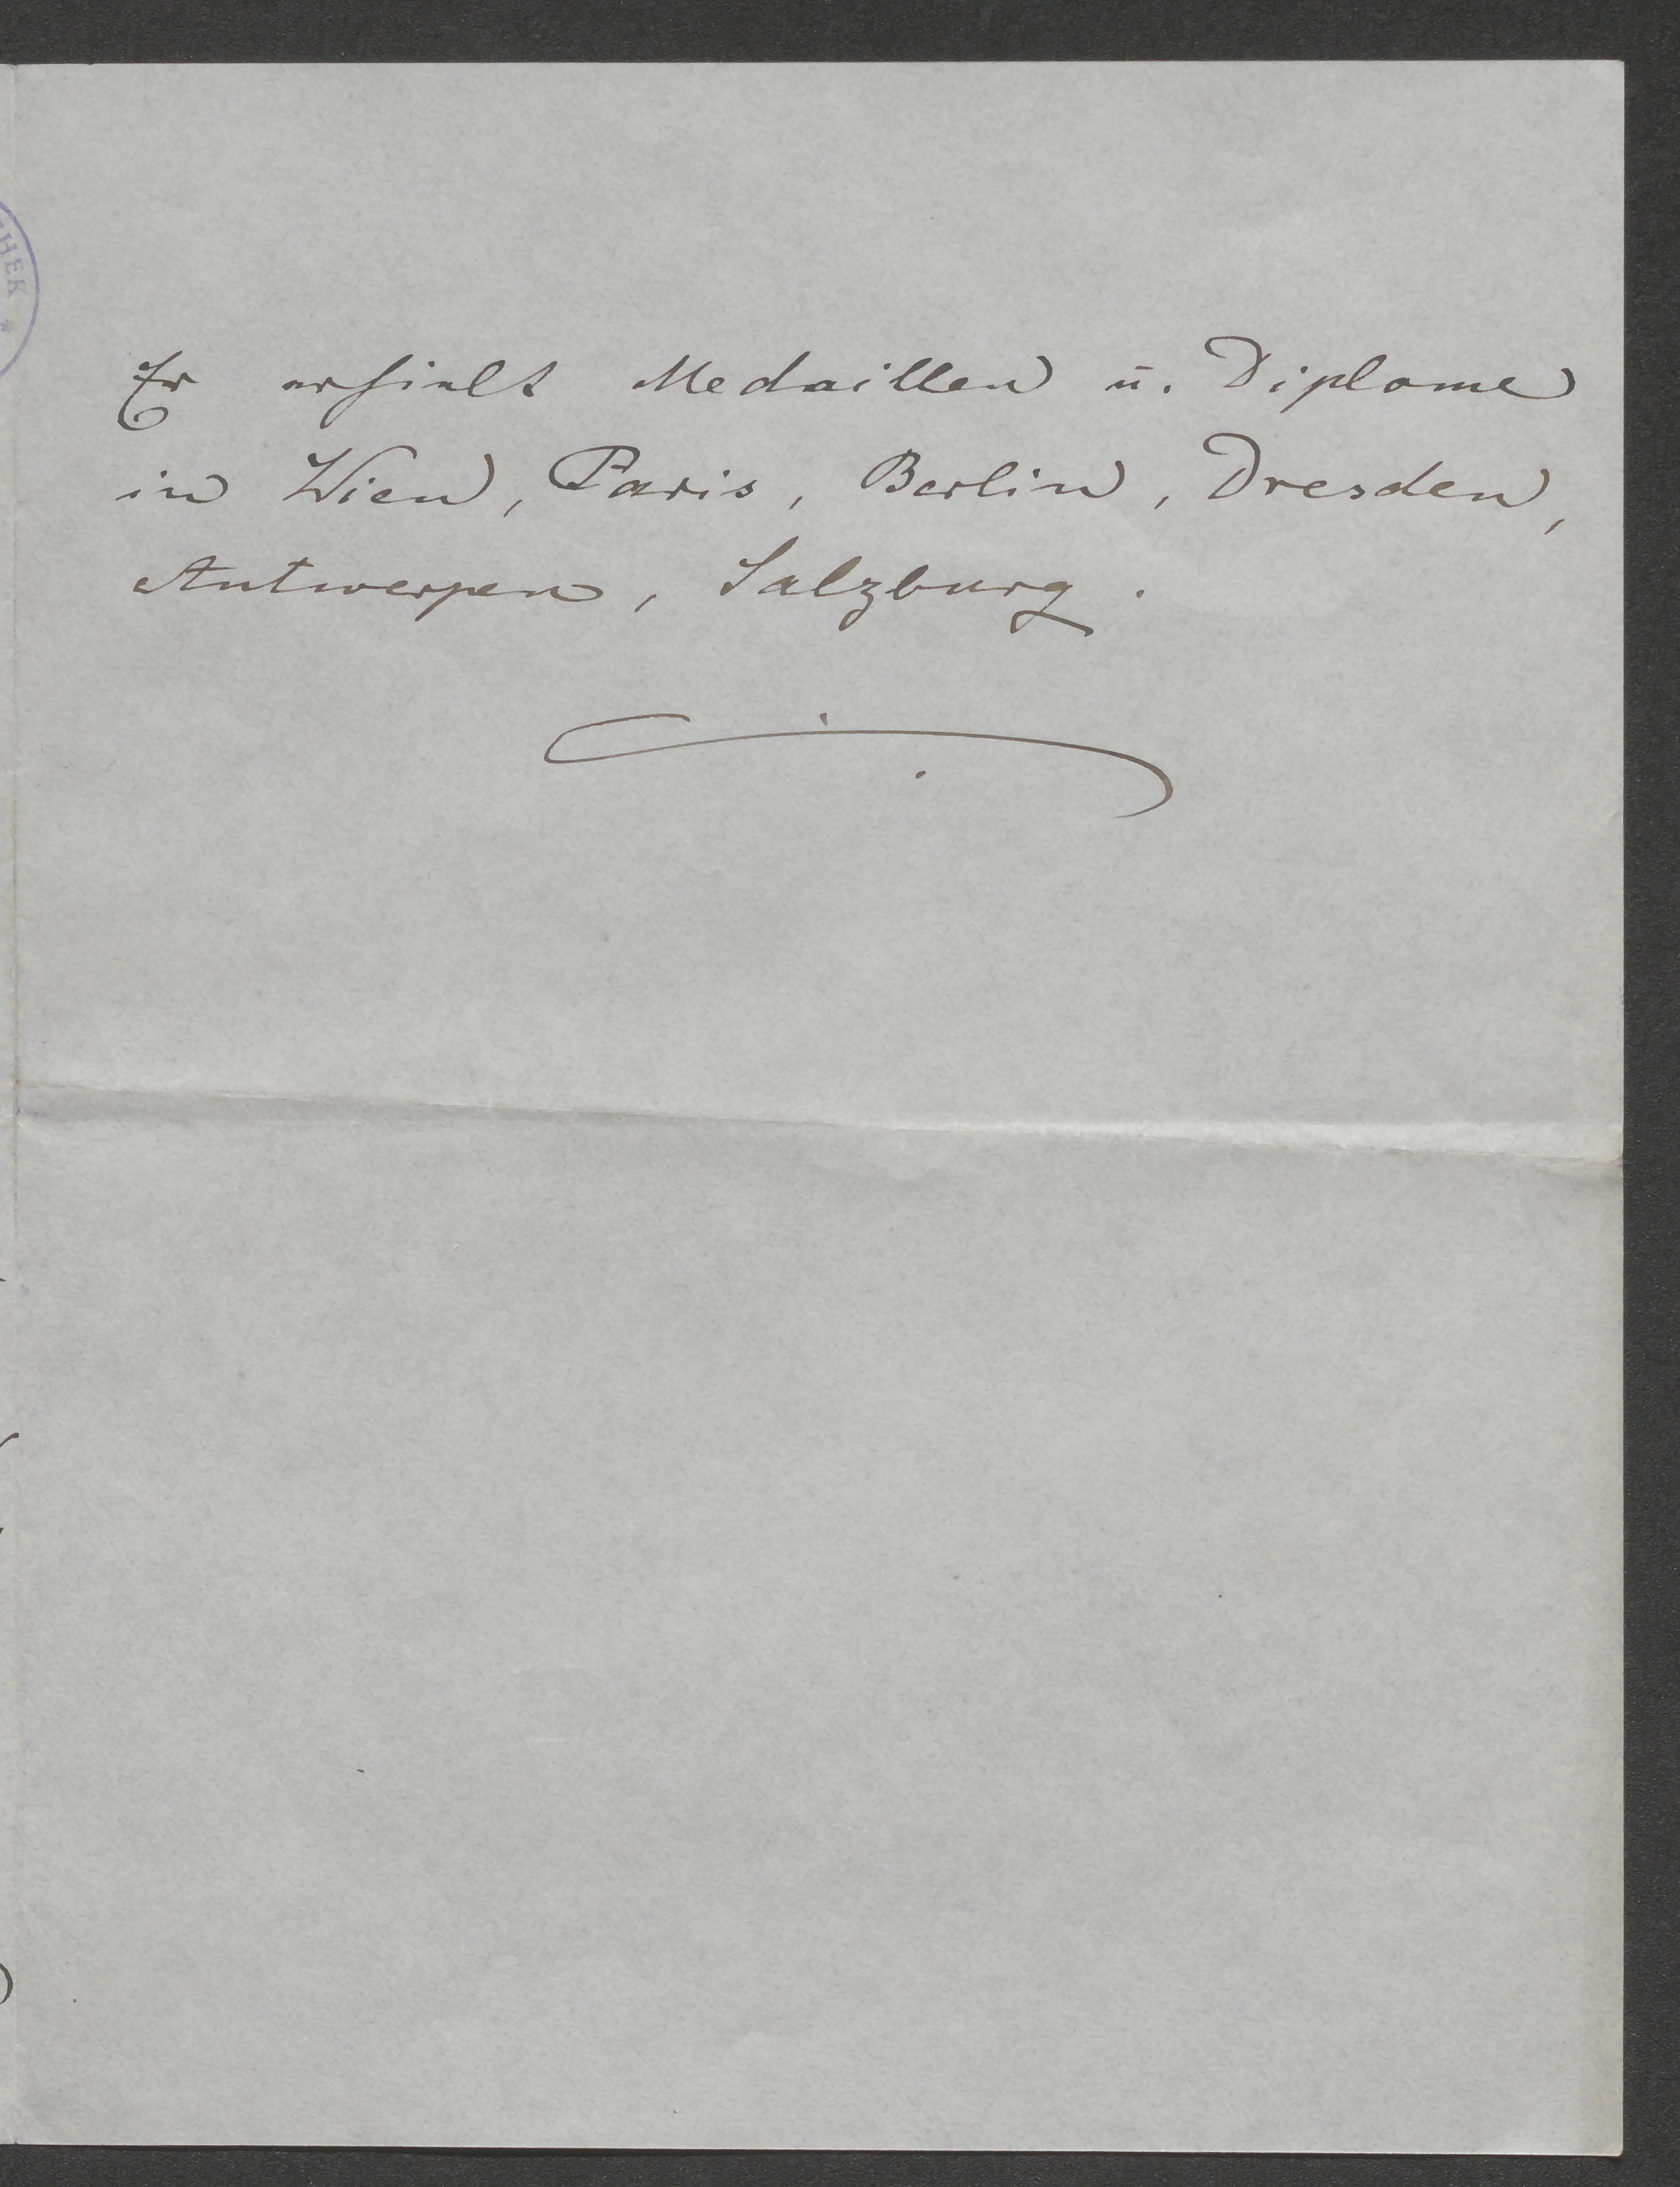 HEK *
Er erhielt Medaillen u. Diplome
in Wien, Paris, Berlin, Dresden,
Antwerpen, Salzburg.